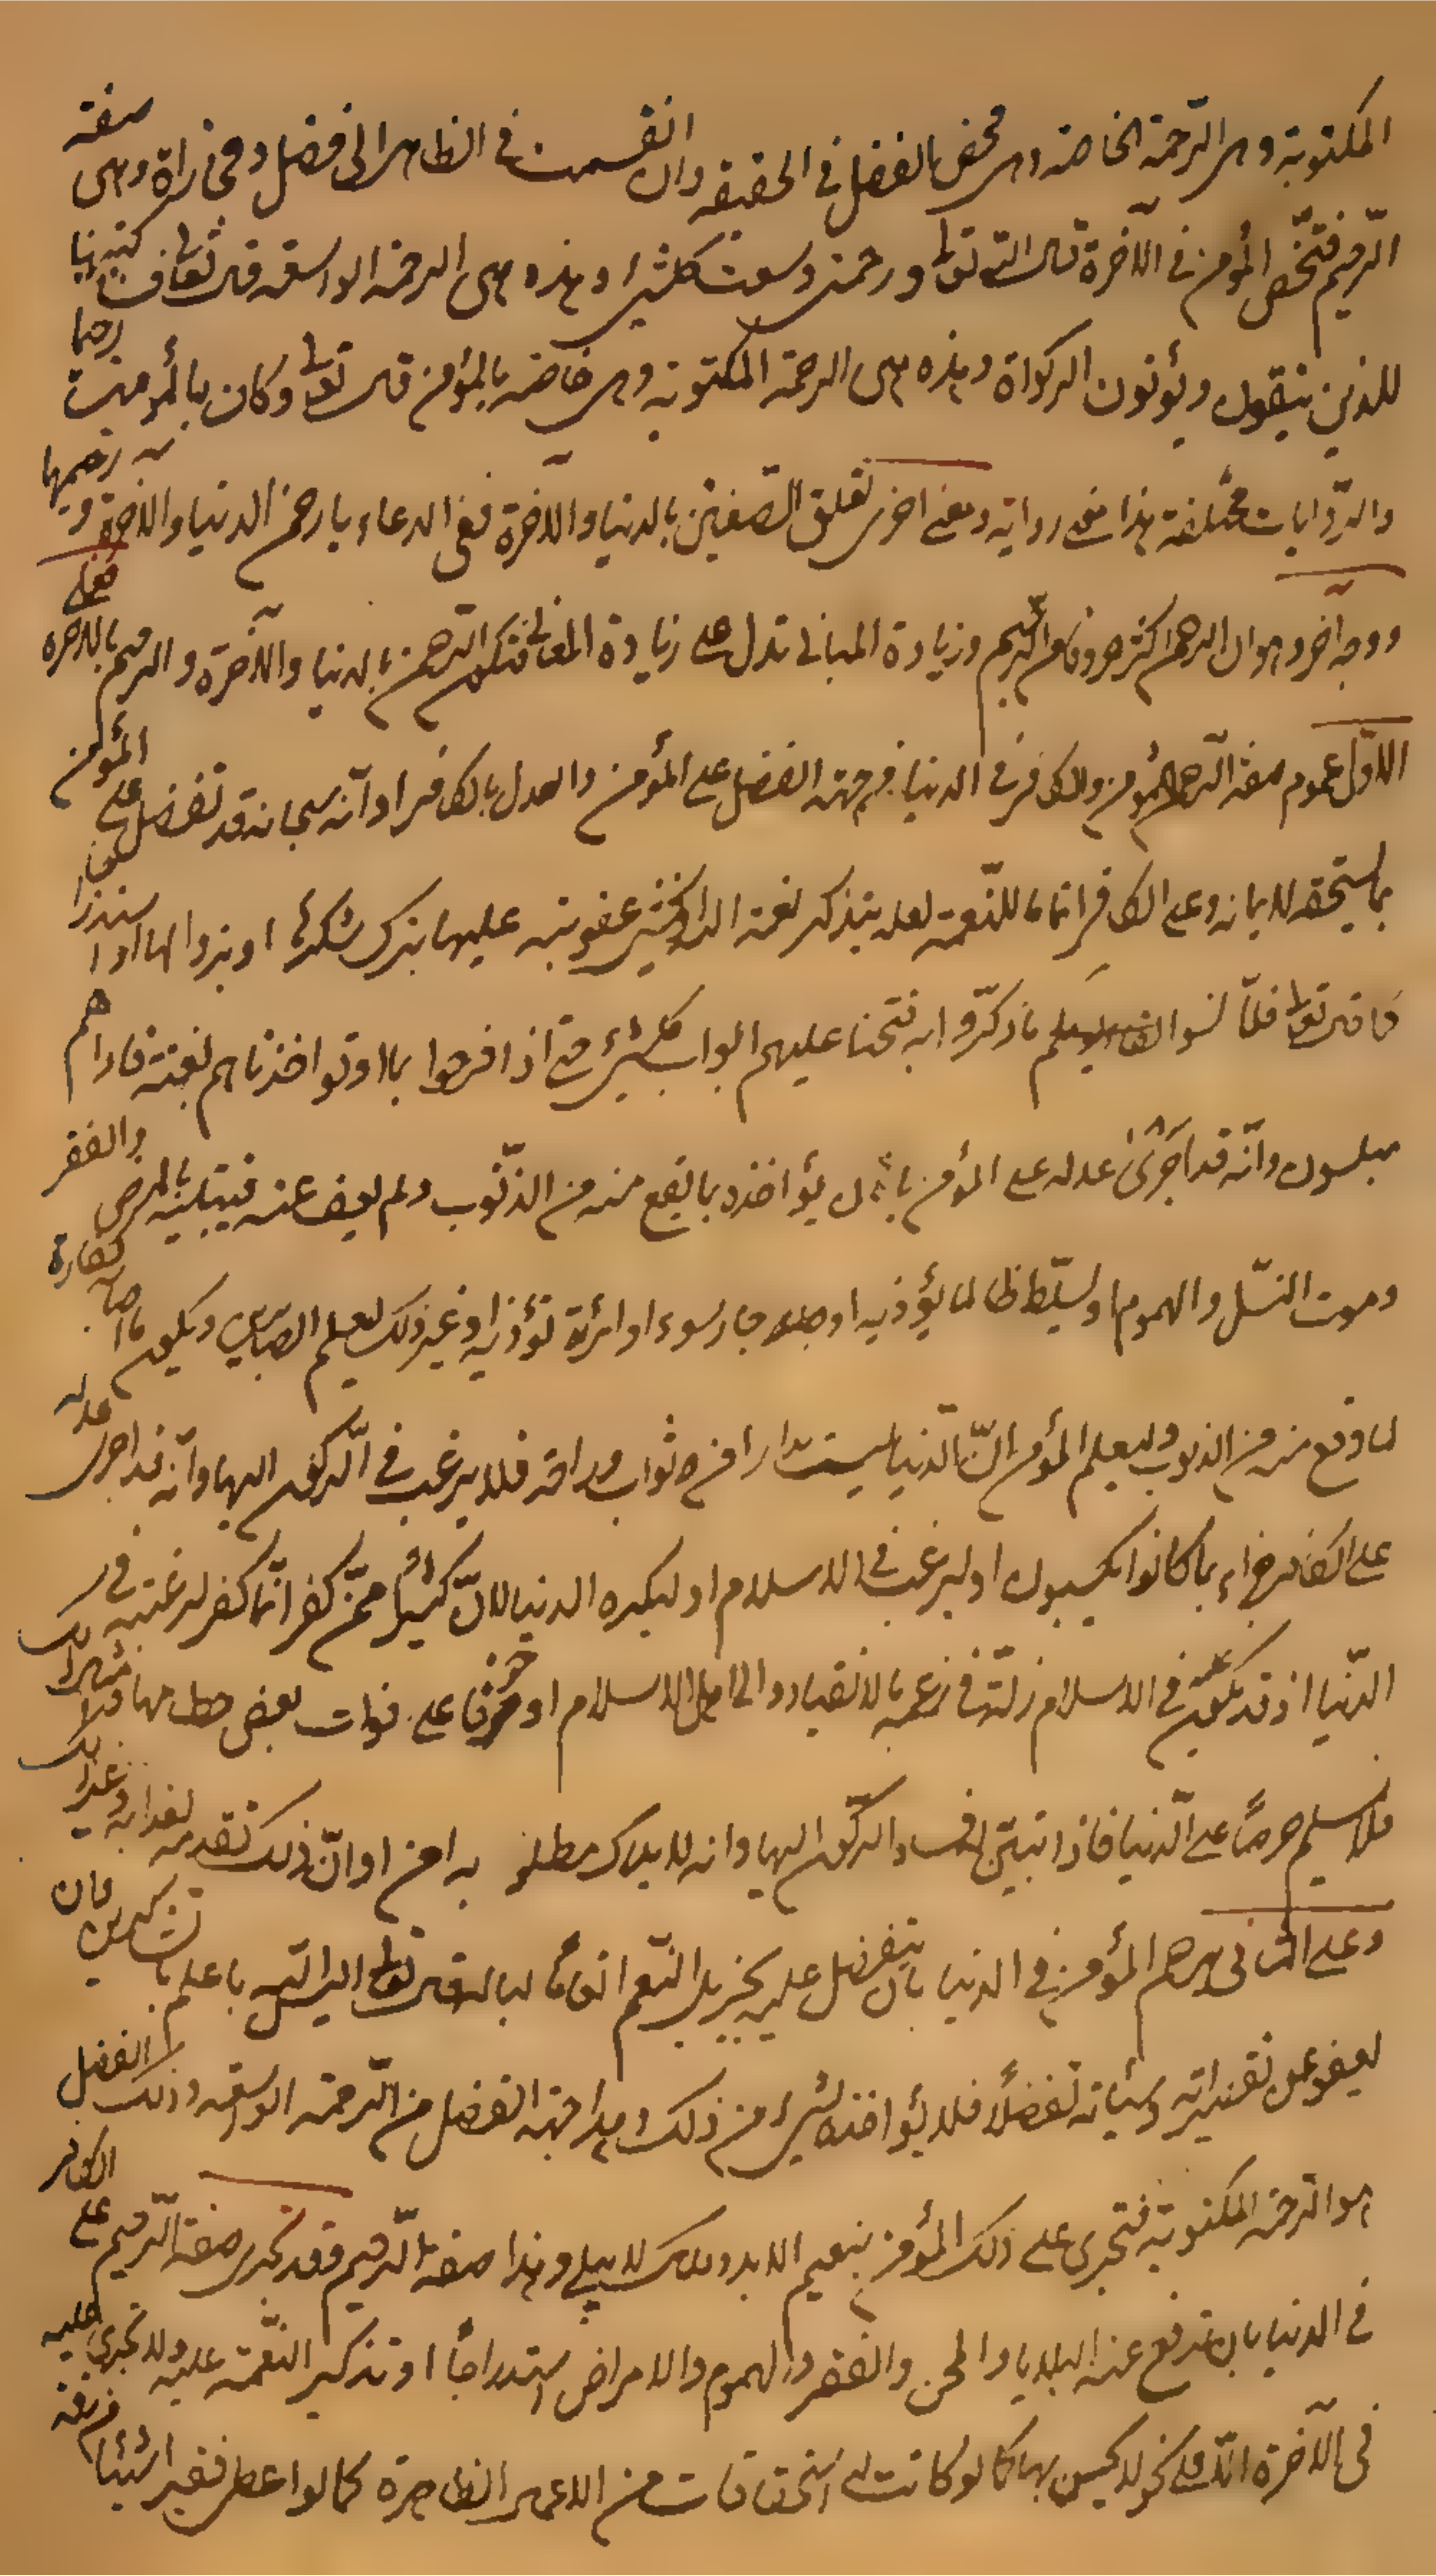 المكتوبة وهي الرّحمة الخاصة وهي محض الفضل في الحقيقة وان انقسمت في الظاهر الى فضل ومجازاة وهي صفة
الرّحيم فتختّص المؤمن في الآخرة قال اللّه تعالى ورحمتي وسعت كل شيء وهذه هي الرحمة الواسعة قال تعالى فسأكتبها
للذين يتقون ويؤتون الزكواة وهذه هي الرحمة المكتوبة وهي خاصة بالمؤمن قال تعالى وكان بالمؤمنين رحيما
والرّوايات مختلفة هذا في رواية وفي اخرى تعلق الصفتين بالدنيا والآخرة ففي الدعاء يا رحمن الدنيا والاخرة ورحيمهما
ووجه آخر وهو ان الرحمن اكثر حروفا من الرّحيم وزيادة المباني تدل على زيادة المعاني فتكون الرّحمن بالدنيا والآخرة والرحيم بالاخرة فعلى
الاوّل عموم صفة الرّحمن للمؤمن والكافر في الدنيا من جهة الفضل على المؤمن والعدل بالكافر او انّه سبحانه قد تفضل على المؤمن
بما يستحقه لايمانه وعلى الكافر اتماما للنّعمة لعله يتذكر نعمة اللّه او يخشى عقوبته عليها بترك شكره او بزوالها او استدراجا
كما قال تعالى فلمّا نسوا ما ذكّروا به فتحنا عليهم ابواب كل شيء حتى اذا فرحوا بما اوتوا اخذناهم بغتة فاذا هم
مبلسون وانّه قد اجرى عدله على المؤمن بان يؤاخذه بما يقع منه من الذّنوب ولم يعف عنه فيبتليه بالمرض والفقر
وموت النسّل والهموم او يسلّط ظالما يؤذيه او جار سوء او امرأة تؤذيه او غير ذلك ليعلم الصابرين ويكون ما اصابه كفارة
لما وقع منه من الذنوب وليعلم المؤمن انّ الدّنيا ليست دارا من ثواب وراحة فلا يرغب في الرّكون اليها وانّه قد اجرى عدله
على الكافر جزاء بما كانوا يكسبون او ليرغب في الاسلام او ليكره الدنيا لانّ كثيرا ممّن كفر انّما كفر لرغبته في
الدّنيا اذ قد يكون في الاسلام ذلّة في زعمه بالانقياد والى اهل الاسلام او خوفا على فوات بعض حطامها
فلا يسلم حرصًا على الدّنيا فاذا تبيّن فساد الرّكون اليها وانه لا يدرك مطلوبه امن او انّ ذلك تقدمة لعذابه
وعلى الثاني يرحم المؤمن في الدنيا بان يتفضل عليه بجزيل النّعم قال تعالى اليس اللّه باعلم بالشاكرين وبان
يعفو عن تقصيراته وسيئاته تفضلًا فلا يؤاخذه بشيء من ذلك وهذا جهة الفضل من الرّحمة الواسعة وذلك الفضل
هو الرّحمة المكتوبة فتجري على ذلك المؤمن بنعيم الابد وملك لا يبلى وهذا صفة الرّحيم وقد تجرى صفة الرّحيم على الكافر
في الدنيا بان تدفع عنه البلايا والمحن والفقر والهموم والامراض استدراجًا او تذكير النّعمة عليه ولا تجري عليه
في الآخرة الّا على نحو لا يحس بها كما لو كانت له استحقاقات من الاعمال الظاهرة كما لو اعطى فقيرا شيئا